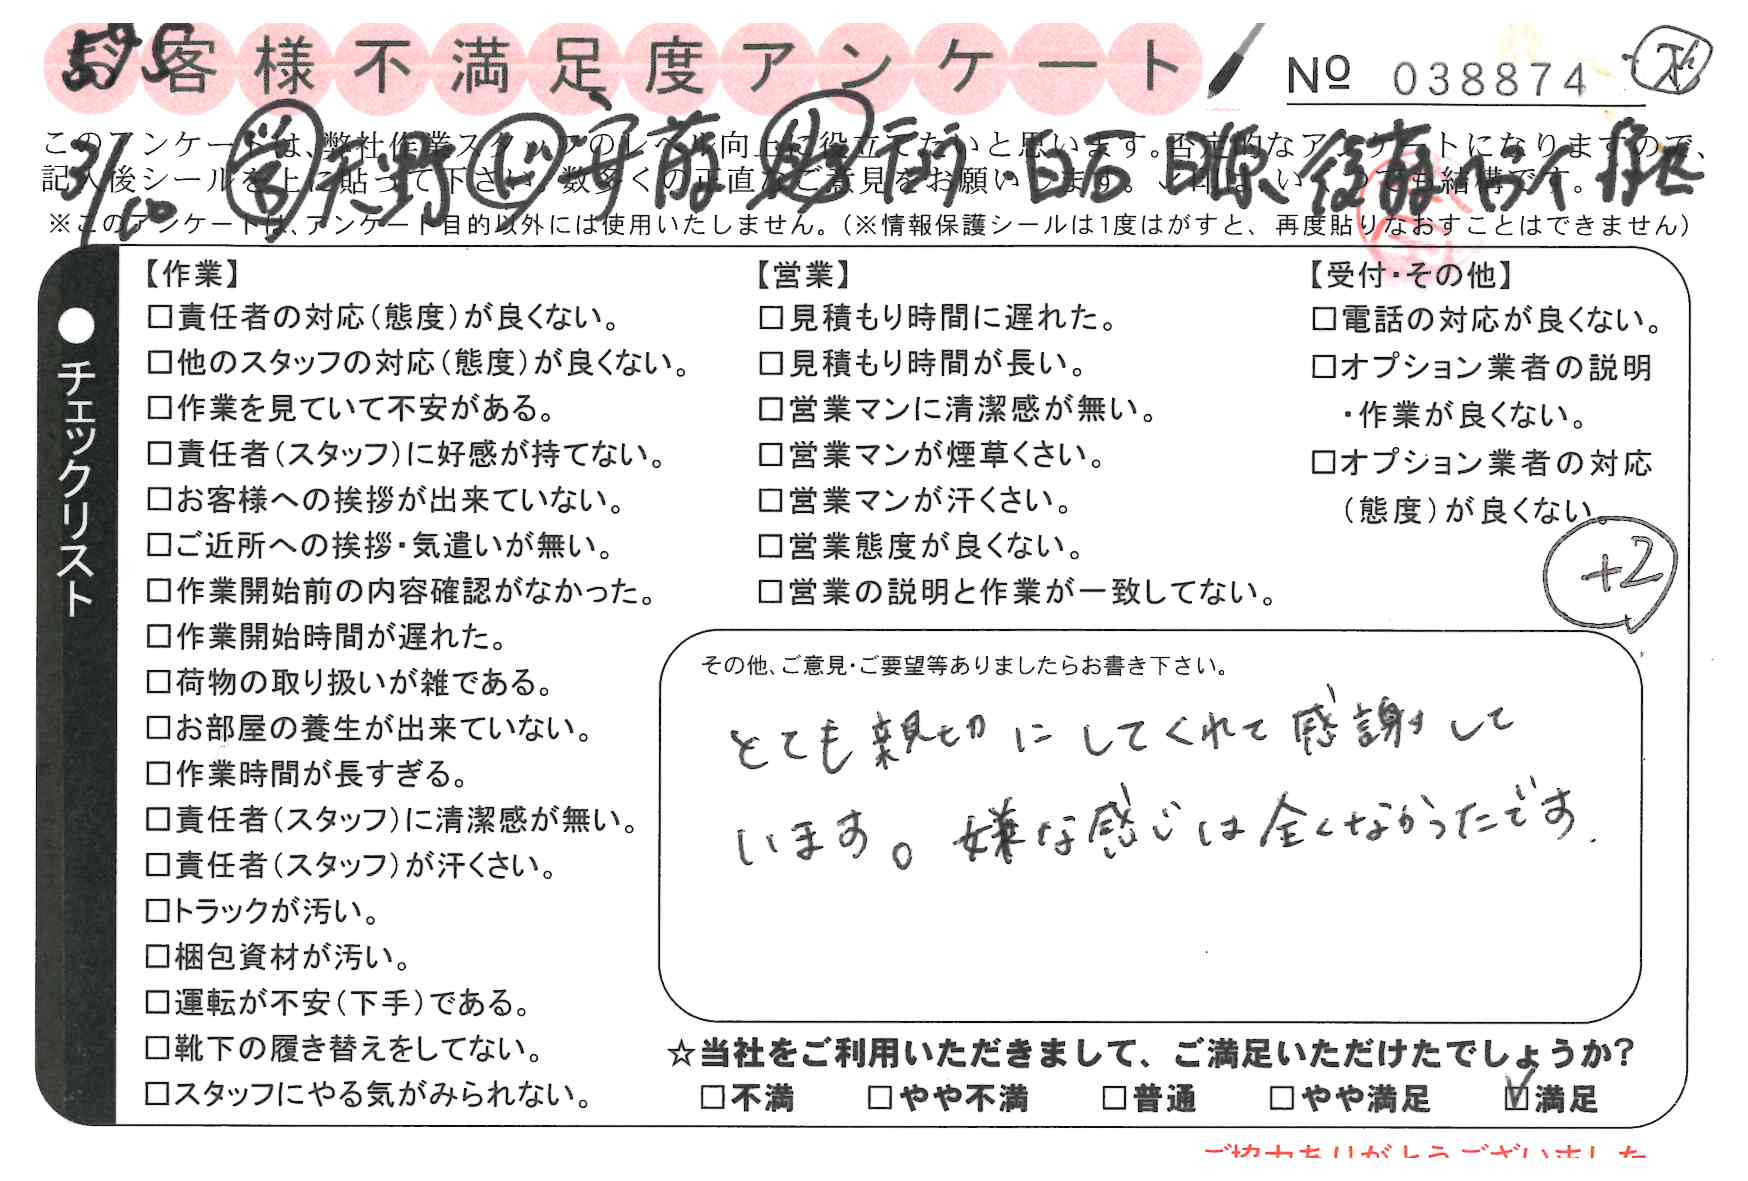 お客様不満足度アンケート
Nº 038874
このアンケートは、弊社作業スタッフのレベル向上に役立てたいと思います。否定的なアンケートになりますので、
記入後シールを上に貼って下さい。数多くの正直なご意見をお願いします。
※このアンケートは、アンケート目的以外には使用いたしません。(※情報保護シールは1度はがすと、再度貼りなおすことはできません)
3/10
●チェックリスト
【作業】
□責任者の対応(態度)が良くない。
□他のスタッフの対応(態度)が良くない。
□作業を見ていて不安がある。
□責任者(スタッフ)に好感が持てない。
□お客様への挨拶が出来ていない。
□ご近所への挨拶・気遣いが無い。
□作業開始前の内容確認がなかった。
□作業開始時間が遅れた。
□荷物の取り扱いが雑である。
□お部屋の養生が出来ていない。
□作業時間が長すぎる。
□責任者(スタッフ)に清潔感が無い。
□責任者(スタッフ)が汗くさい。
□トラックが汚い。
□梱包資材が汚い。
□運転が不安(下手)である。
□靴下の履き替えをしてない。
□スタッフにやる気がみられない。
【営業】
□見積もり時間に遅れた。
□見積もり時間が長い。
□営業マンに清潔感が無い。
□営業マンが煙草くさい。
□営業マンが汗くさい。
□営業態度が良くない。
□営業の説明と作業が一致してない。
【受付・その他】
□電話の対応が良くない。
□オプション業者の説明
・作業が良くない。
□オプション業者の対応
(態度)が良くない。
+2
その他、ご意見・ご要望等ありましたらお書き下さい。
とても親切にしてくれて感謝して
います。嫌な感じは全くなかったです.
☆当社をご利用いただきまして、ご満足いただけたでしょうか?
□不満 □やや不満 □普通 □やや満足 ☑満足
ご協力ありがとうございました